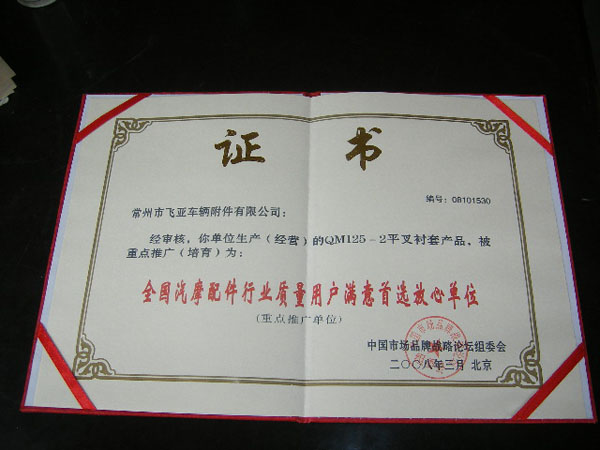 证书
编号：08101530
常州市飞亚车辆附件有限公司：
经审核，你单位生产（经营）的QM125－2平叉衬套产品，被
重点推广（培育）为：
全国汽摩配件行业质量用户满意首选放心单位
（重点推广单位）
中国市场品牌战略论坛组委会
二〇〇八年三月 北京